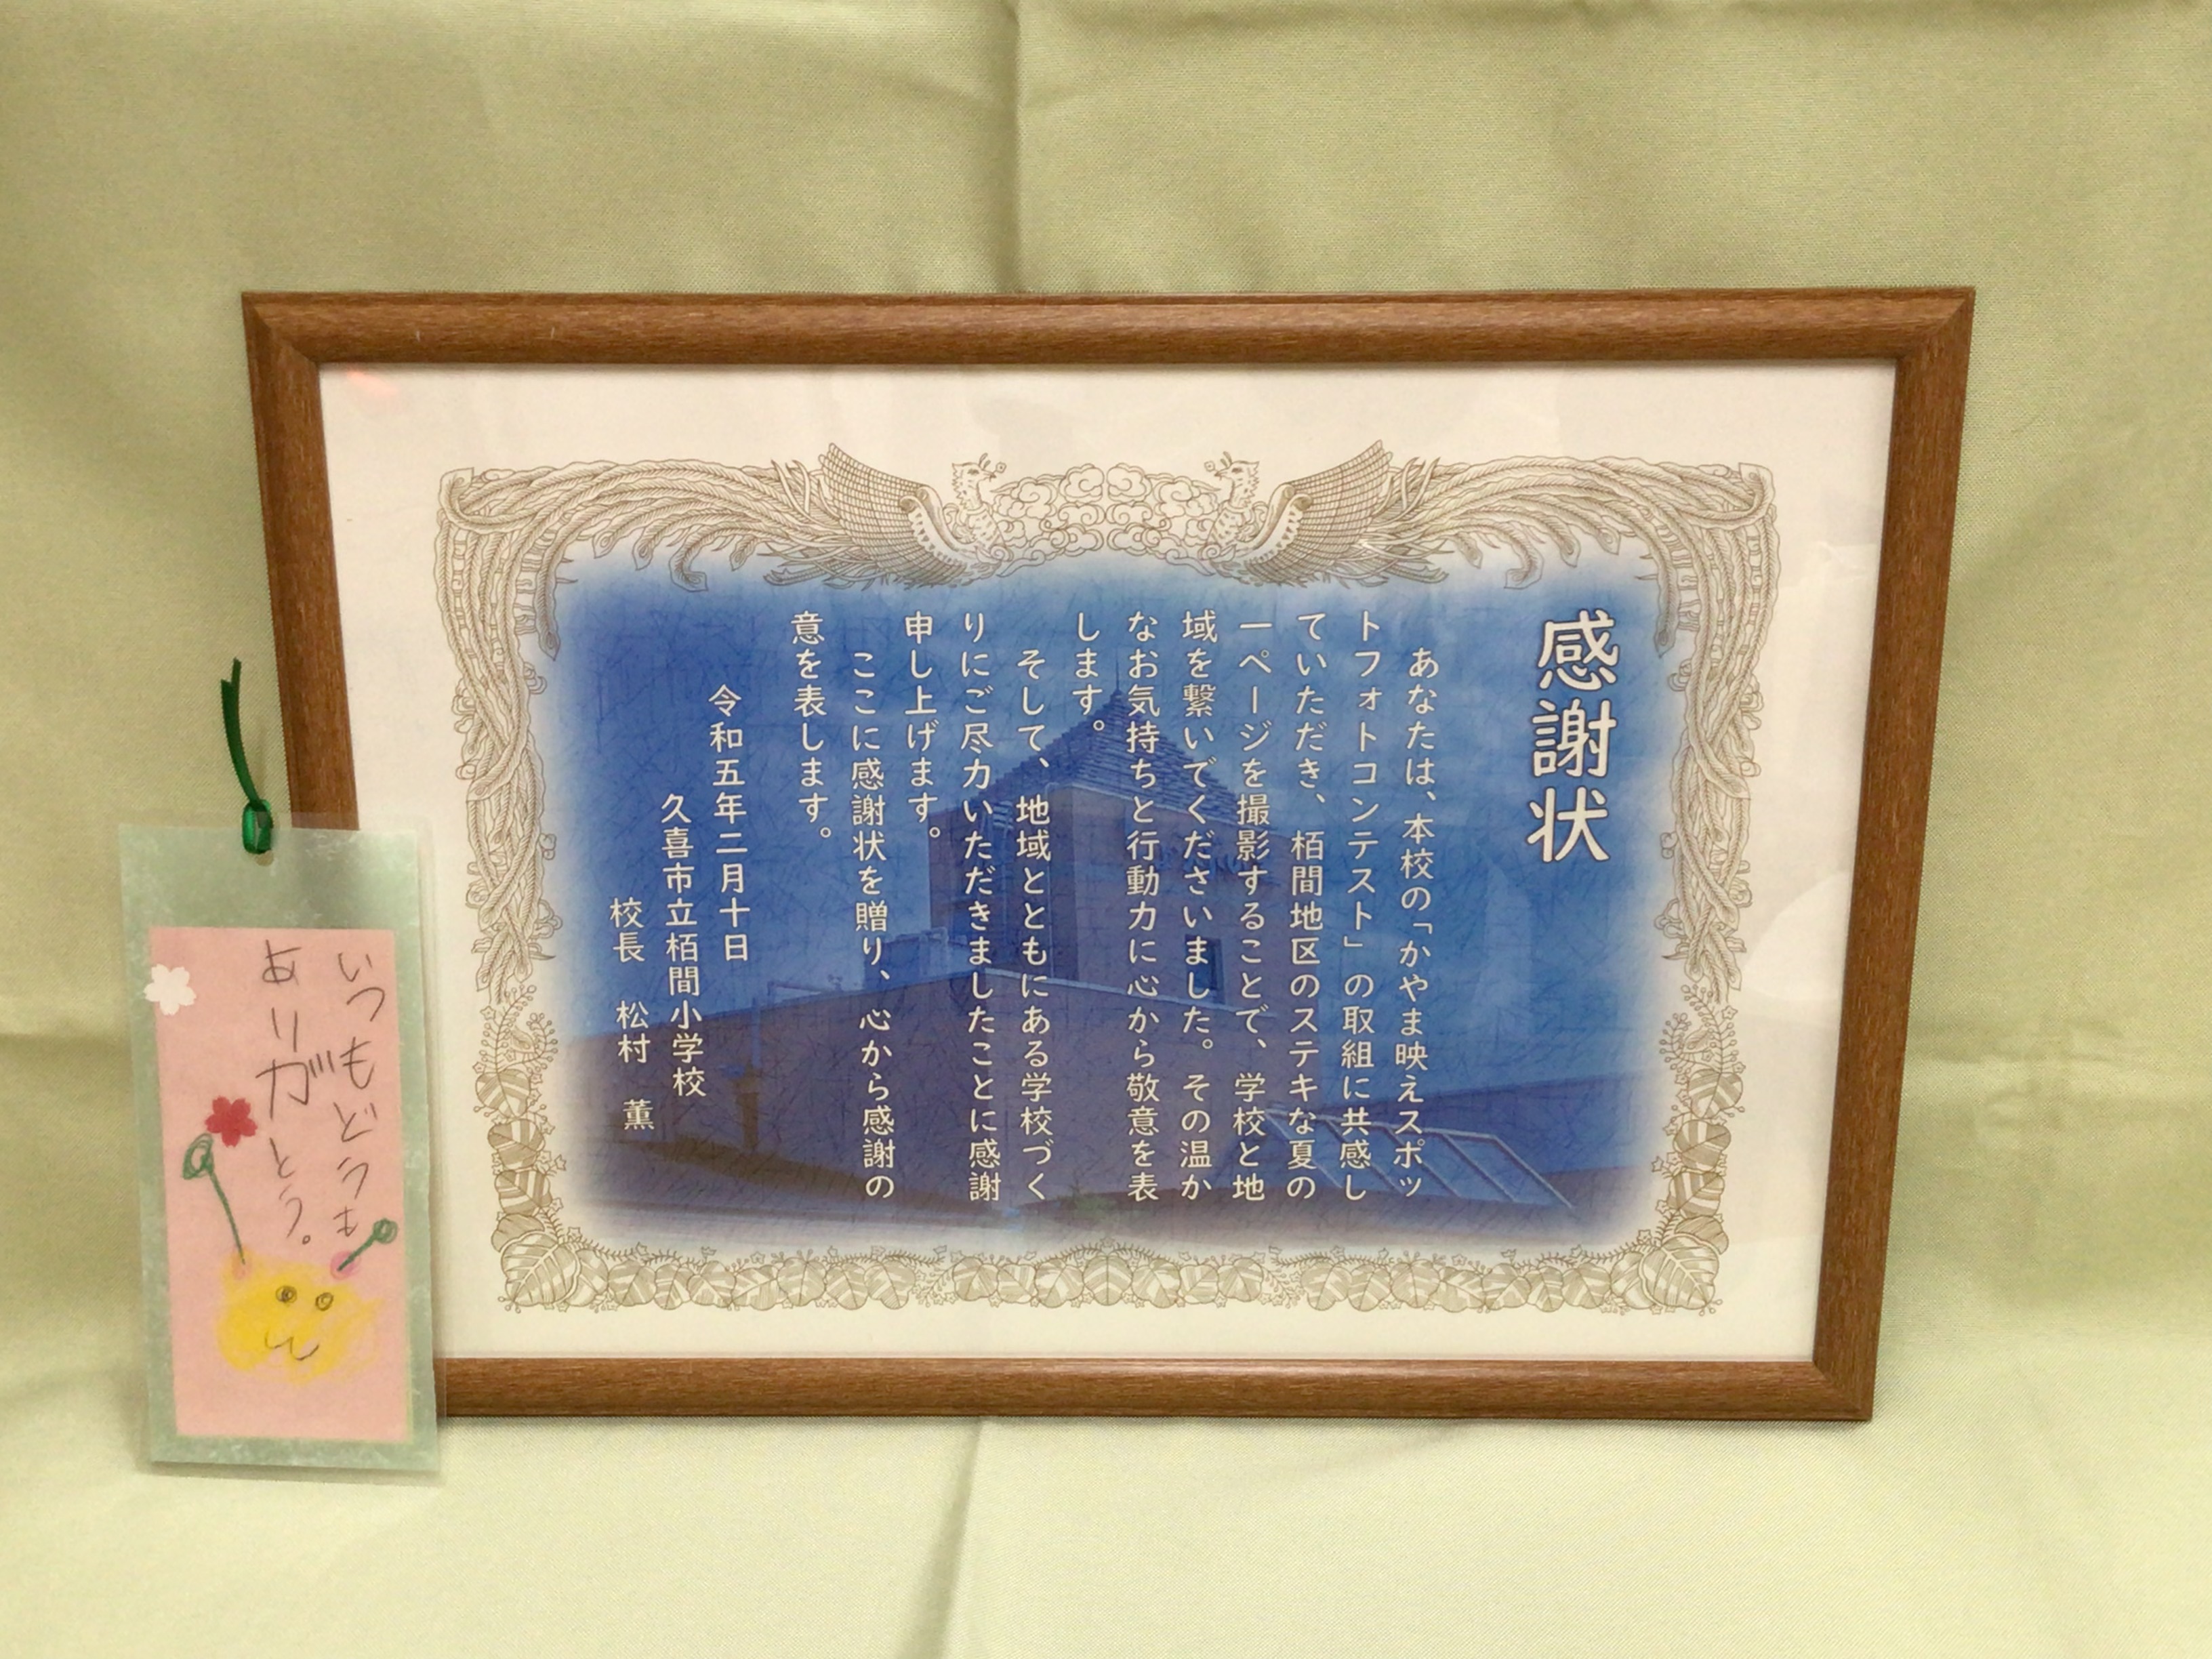 感謝状
あなたは、本校の「かやま映えスポッ
トフォトコンテスト」の取組に共感し
ていただき、栢間地区のステキな夏の
一ページを撮影することで、学校と地
域を繋いでくださいました。その温か
なお気持ちと行動力に心から敬意を表
します。
そして、地域とともにある学校づく
りにご尽力いただきましたことに感謝
申し上げます。
ここに感謝状を贈り、心から感謝の
意を表します。
令和五年二月十日
久喜市立栢間小学校
校長 松村 薫
いつもどうも
ありガとう。